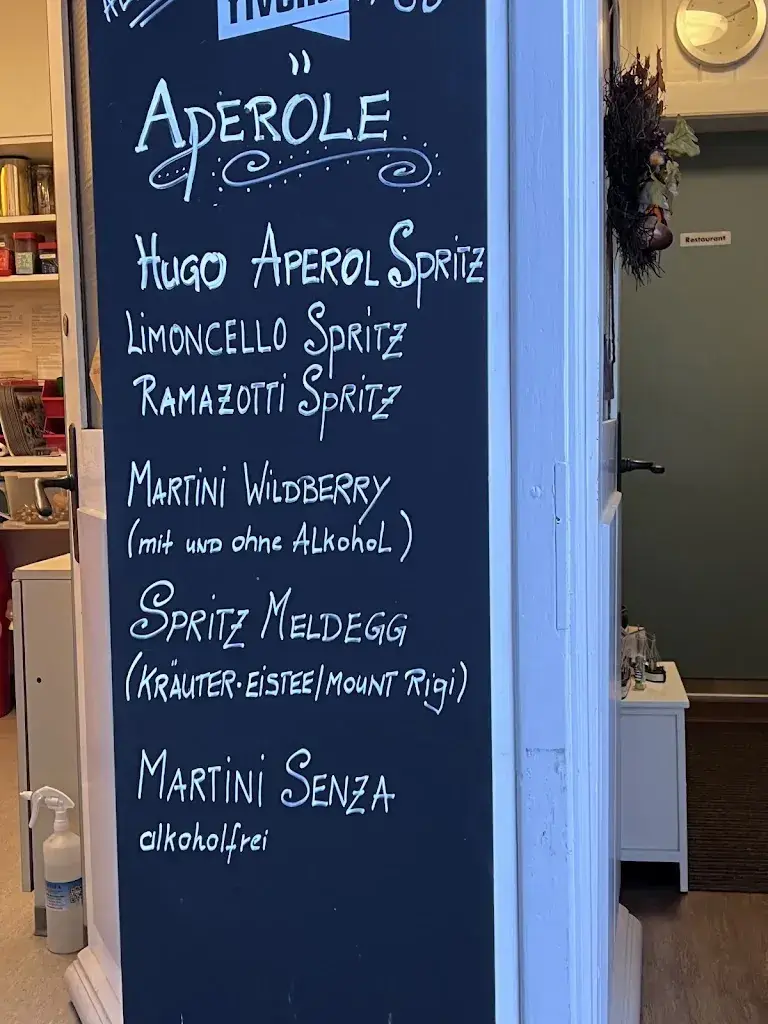 APERÖLE
HUGO APEROL SPRITZ
LIMONCELLO SPRITZ
RAMAZOTTI SPRITZ
MARTINI WILDBERRY
(mit und ohne ALKohoL)
SPRITZ MELDEGG
(KRÄUTER·EISTEE/MOUNT Rigi)
MARTINI SENZA
alkoholfrei
Restaurant